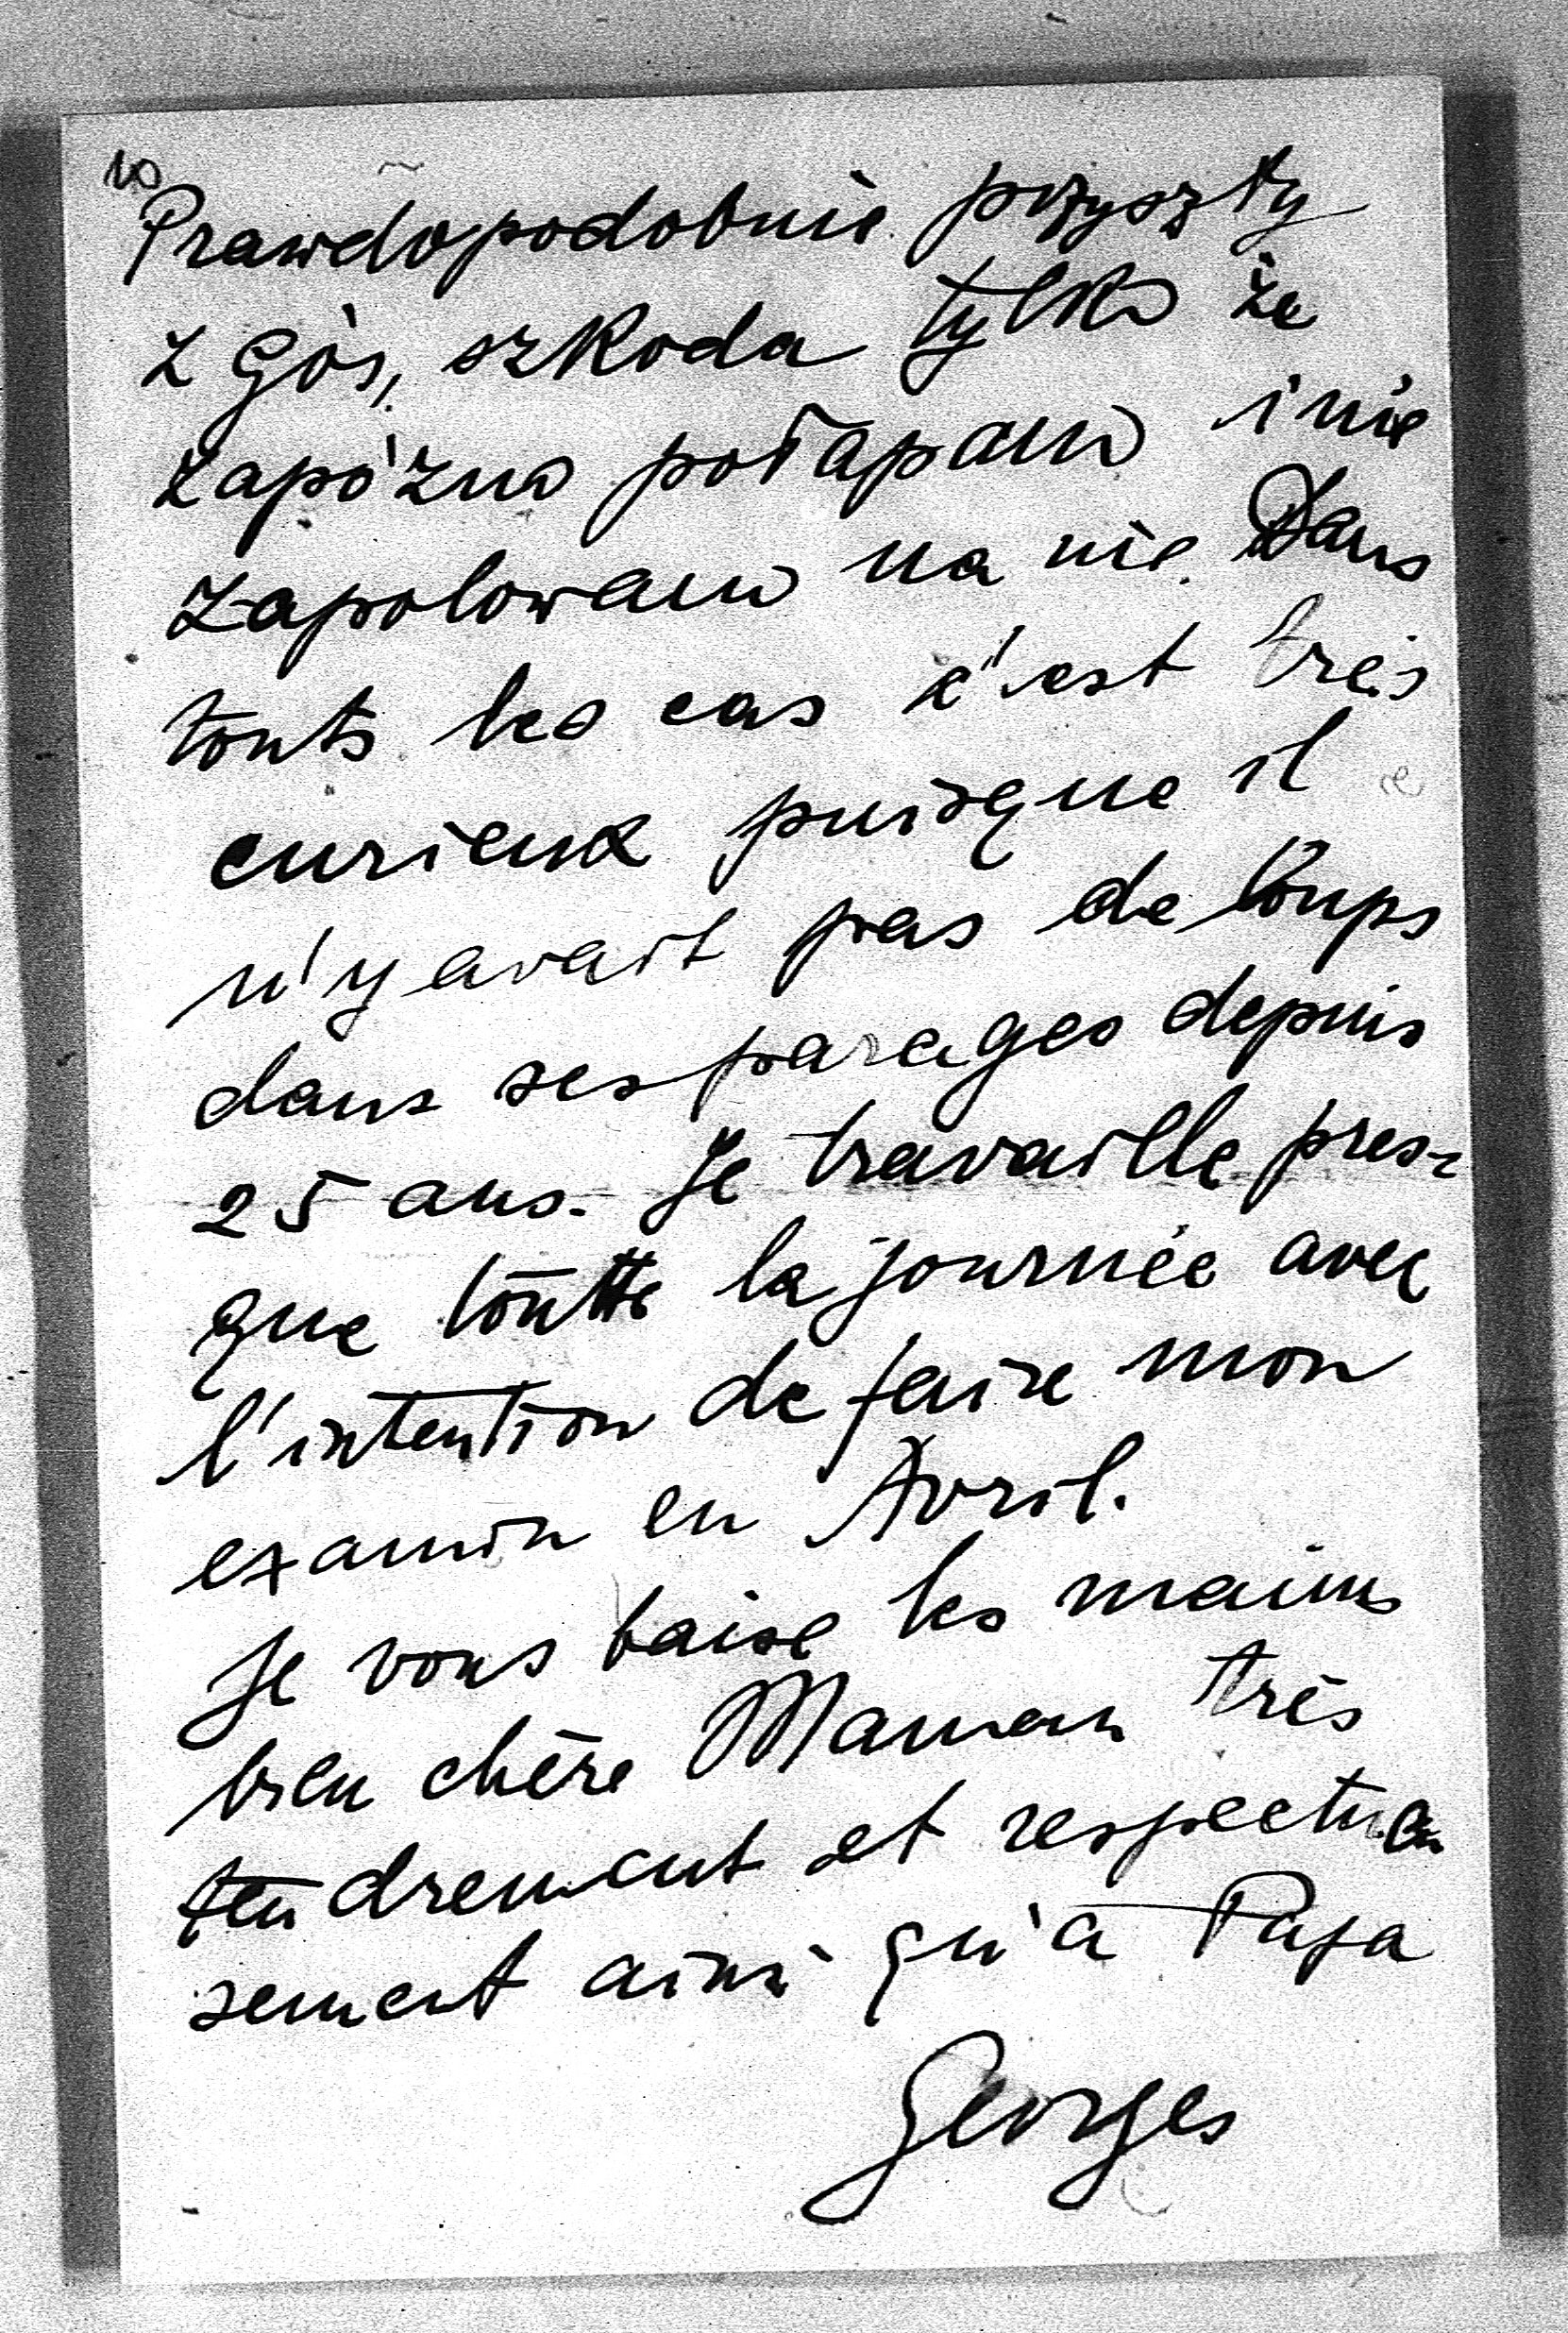 10
Prawdopodobnie przyszły
z gór, szkoda tylko że
zapóżno połapano i nie
zapolowano na nie. Dans
touts les cas c'est très
curieux puisque il
n'y avait pas de loups
dans ses parages depuis
25 ans. Je travaille pres-
que toutte la journée avec
l'intention de faire mon
examin en Avril.
Je vous baise les mains
bien chère Maman très
tendrement et respectueu
sement ainsi qu'à Papa
Georges